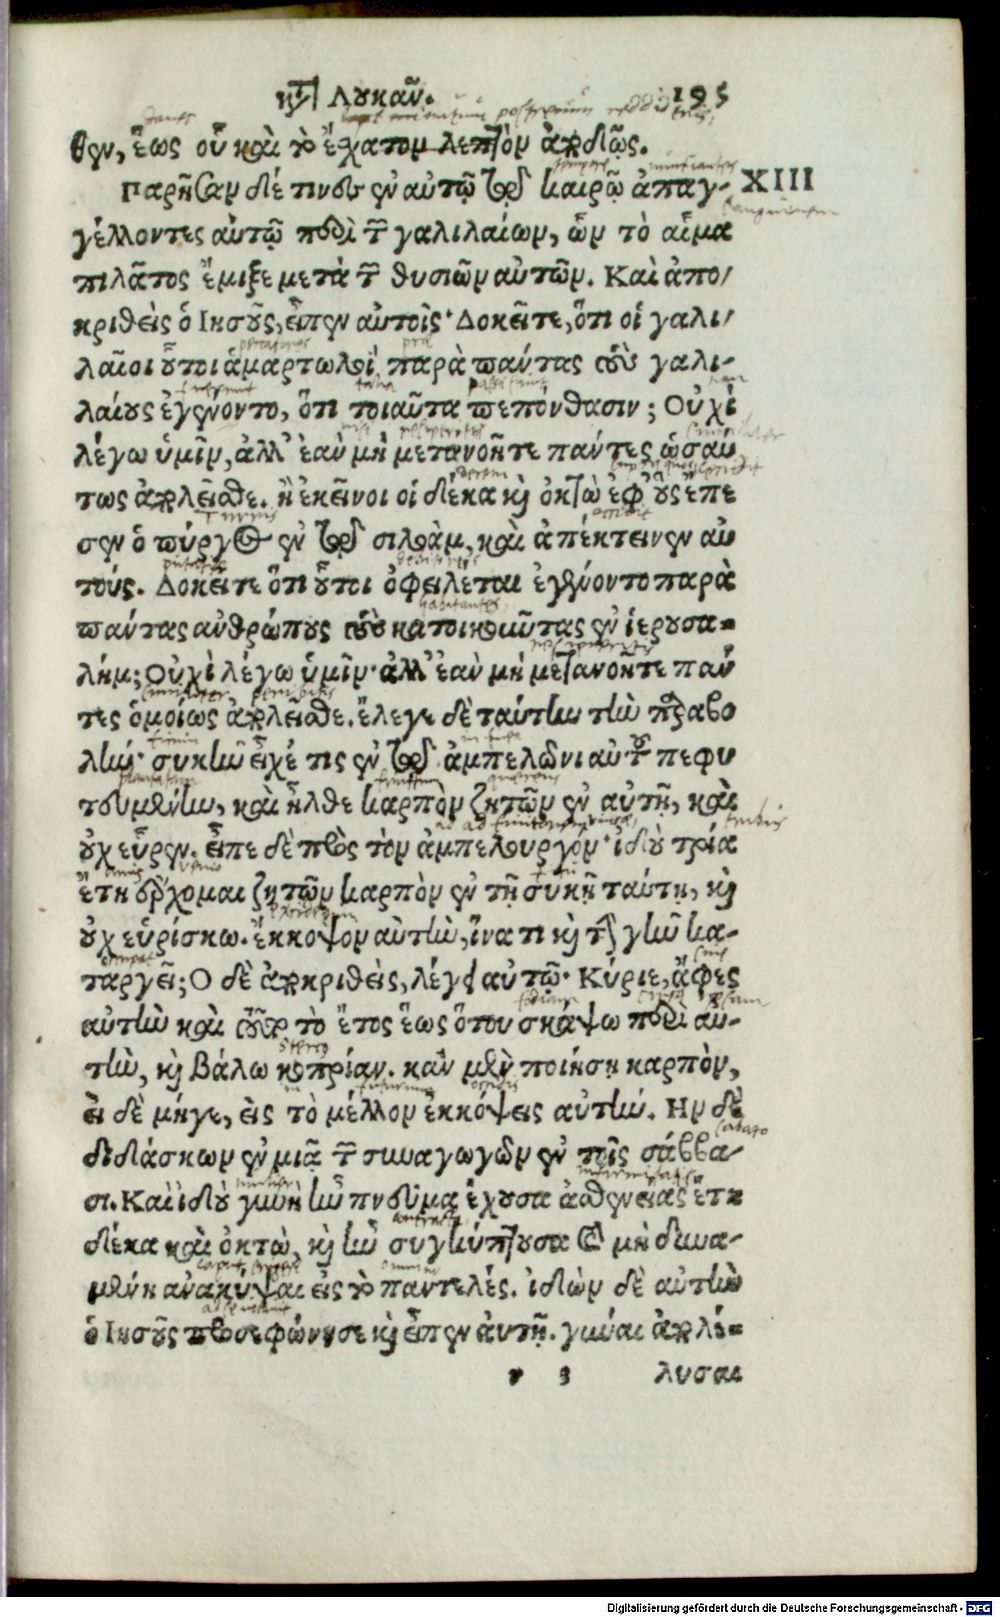 κατὰ Λουκᾶν. 195
θεν, ἕως οὗ καὶ τὸ ἔχατον λεπτὸν ἀποδῷς.
Παρῆσαν δέ τινες ἐν αὐτῷ τῷ καιρῷ ἀπαγ- XIII
γέλλοντες αὐτῷ περὶ τῶν γαλιλαίων, ὧν τὸ αἷμα
πιλᾶτος ἔμιξε μετὰ τῶν θυσιῶν αὐτῶν. Καὶ ἀπο/
κριθεὶς ὁ Ιησοῦς, εἶπεν αὐτοῖς· Δοκεῖτε, ὅτι οἱ γαλι/
λαῖοι οὗτοι ἁμαρτωλοὶ παρὰ πάντας τοὺς γαλι-
λαίους ἐγένοντο, ὅτι τοιαῦτα πεπόνθασιν; Οὐχὶ
λέγω ὑμῖν, ἀλλ' ἐὰν μὴ μετανοῆτε πάντες ὡσαύ
τως ἀπολεῖσθε. ἢ ἐκεῖνοι οἱ δέκα καὶ ὀκτὼ ἐφ' οὓς ἔπε
σεν ὁ πύργος ἐν τῷ σιλωὰμ, καὶ ἀπέκτεινεν αὐ
τούς. Δοκεῖτε ὅτι οὗτοι ὀφειλέται ἐγένοντο παρὰ
πάντας ανθρώπους τοὺς κατοικοῦντας ἐν ἱερουσα=
λήμ; Οὐχὶ λέγω ὑμῖν· ἀλλ' ἐὰν μὴ μετανοῆτε πάν
τες ὁμοίως ἀπολεῖσθε. ἔλεγε δὲ ταύτην τὴν παραβο
λήν· συκῆν εἶχέ τις ἐν τῷ ἀμπελῶνι αὐτοῦ πεφυ
τευμένην, καὶ ἦλθε καρπὸν ζητῶν ἐν αὐτῇ, καὶ
οὐχ εὗρεν. εἶπε δὲ πρὸς τὸν ἀμπελουργόν· ἰδοὺ τρία
ἔτη ἔρχομαι ζητῶν καρπὸν ἐν τῇ συκῇ ταύτῃ, καὶ
οὐχ εὑρίσκω. ἔκκοψον αὐτὴν, ἵνα τι καὶ τὴν γῆν κα-
ταργεῖ; Ο δὲ ἀποκριθεὶς, λέγει αὐτῷ· Κύριε, ἄφες
αὐτὴν καὶ τοῦτο τὸ ἔτος ἕως ὅτου σκάψω περὶ αὐ-
τὴν, καὶ βάλω κοπρίαν. κἂν μὲν ποιήσῃ καρπὸν,
εἰ δὲ μήγε, εἰς τὸ μέλλον ἐκκόψεις αὐτήν. Ην δὲ
διδάσκων ἐν μιᾷ τῶν συναγωγῶν ἐν τοῖς σάββα-
σι. Καὶ ἰδοὺ γυνὴ ἦν πνεῦμα ἔχουσα ἀσθενείας ἔτη
δέκα καὶ ὀκτὼ, καὶ ἦν συγκύπτουσα καὶ μὴ δυνα-
μένη ανακύψαι εἰς τὸ παντελές. ἰδὼν δὲ αὐτὴν
ὁ Ιησοῦς προσεφώνησε καὶ εἶπεν ἀυτῇ. γύναι ἀπολέ=
r 3 λυσαι
Digitalisierung gefördert durch die Deutsche Forschungsgemeinschaft - DFG